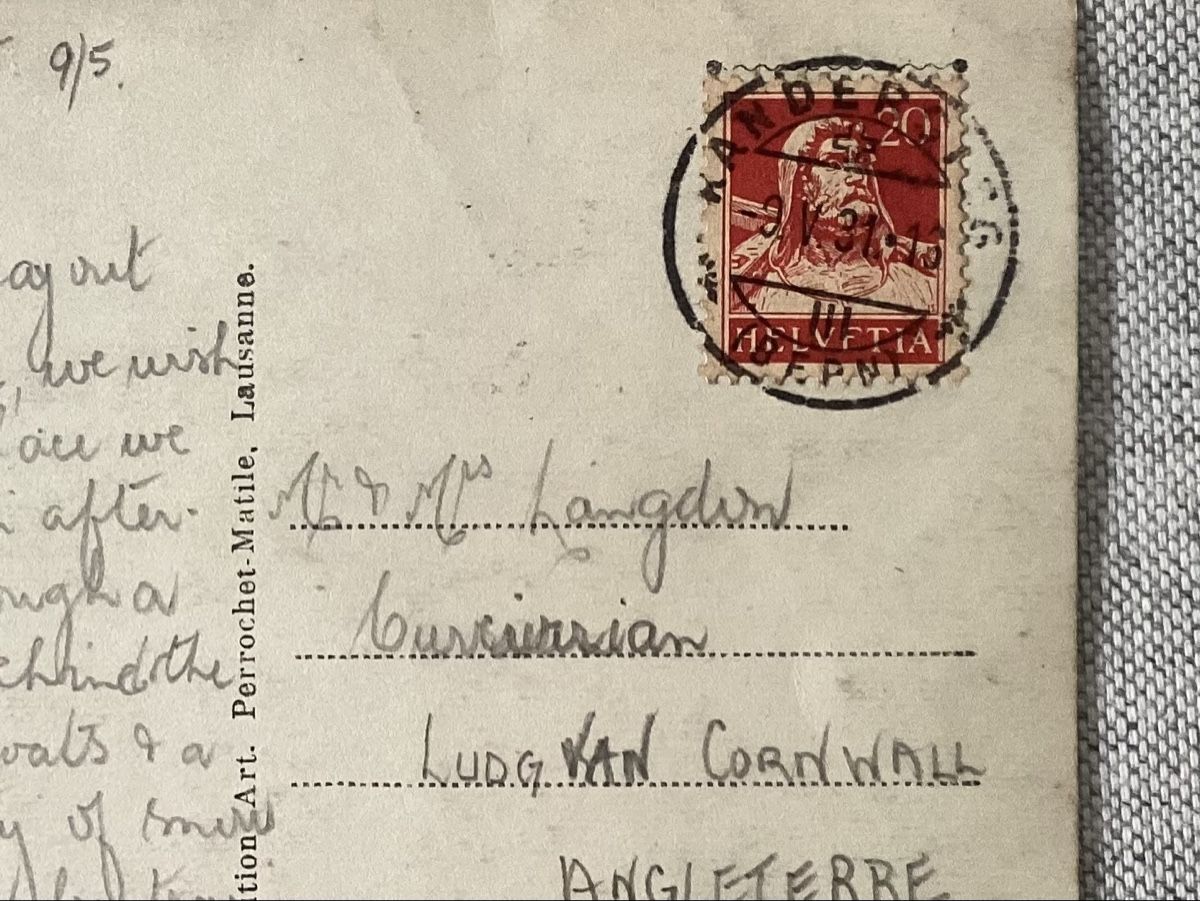 9/5.
ay out
we wish
we
after-
a
behind the
& a
of snow
tion Art. Perrochet-Matile, Lausanne.
KANDERSTEG
20
-9.V.31.-13
III
(BERN)
HELVETIA
Mr & Mrs Langdon
LUDGVAN CORNWALL
ANGLETERRE